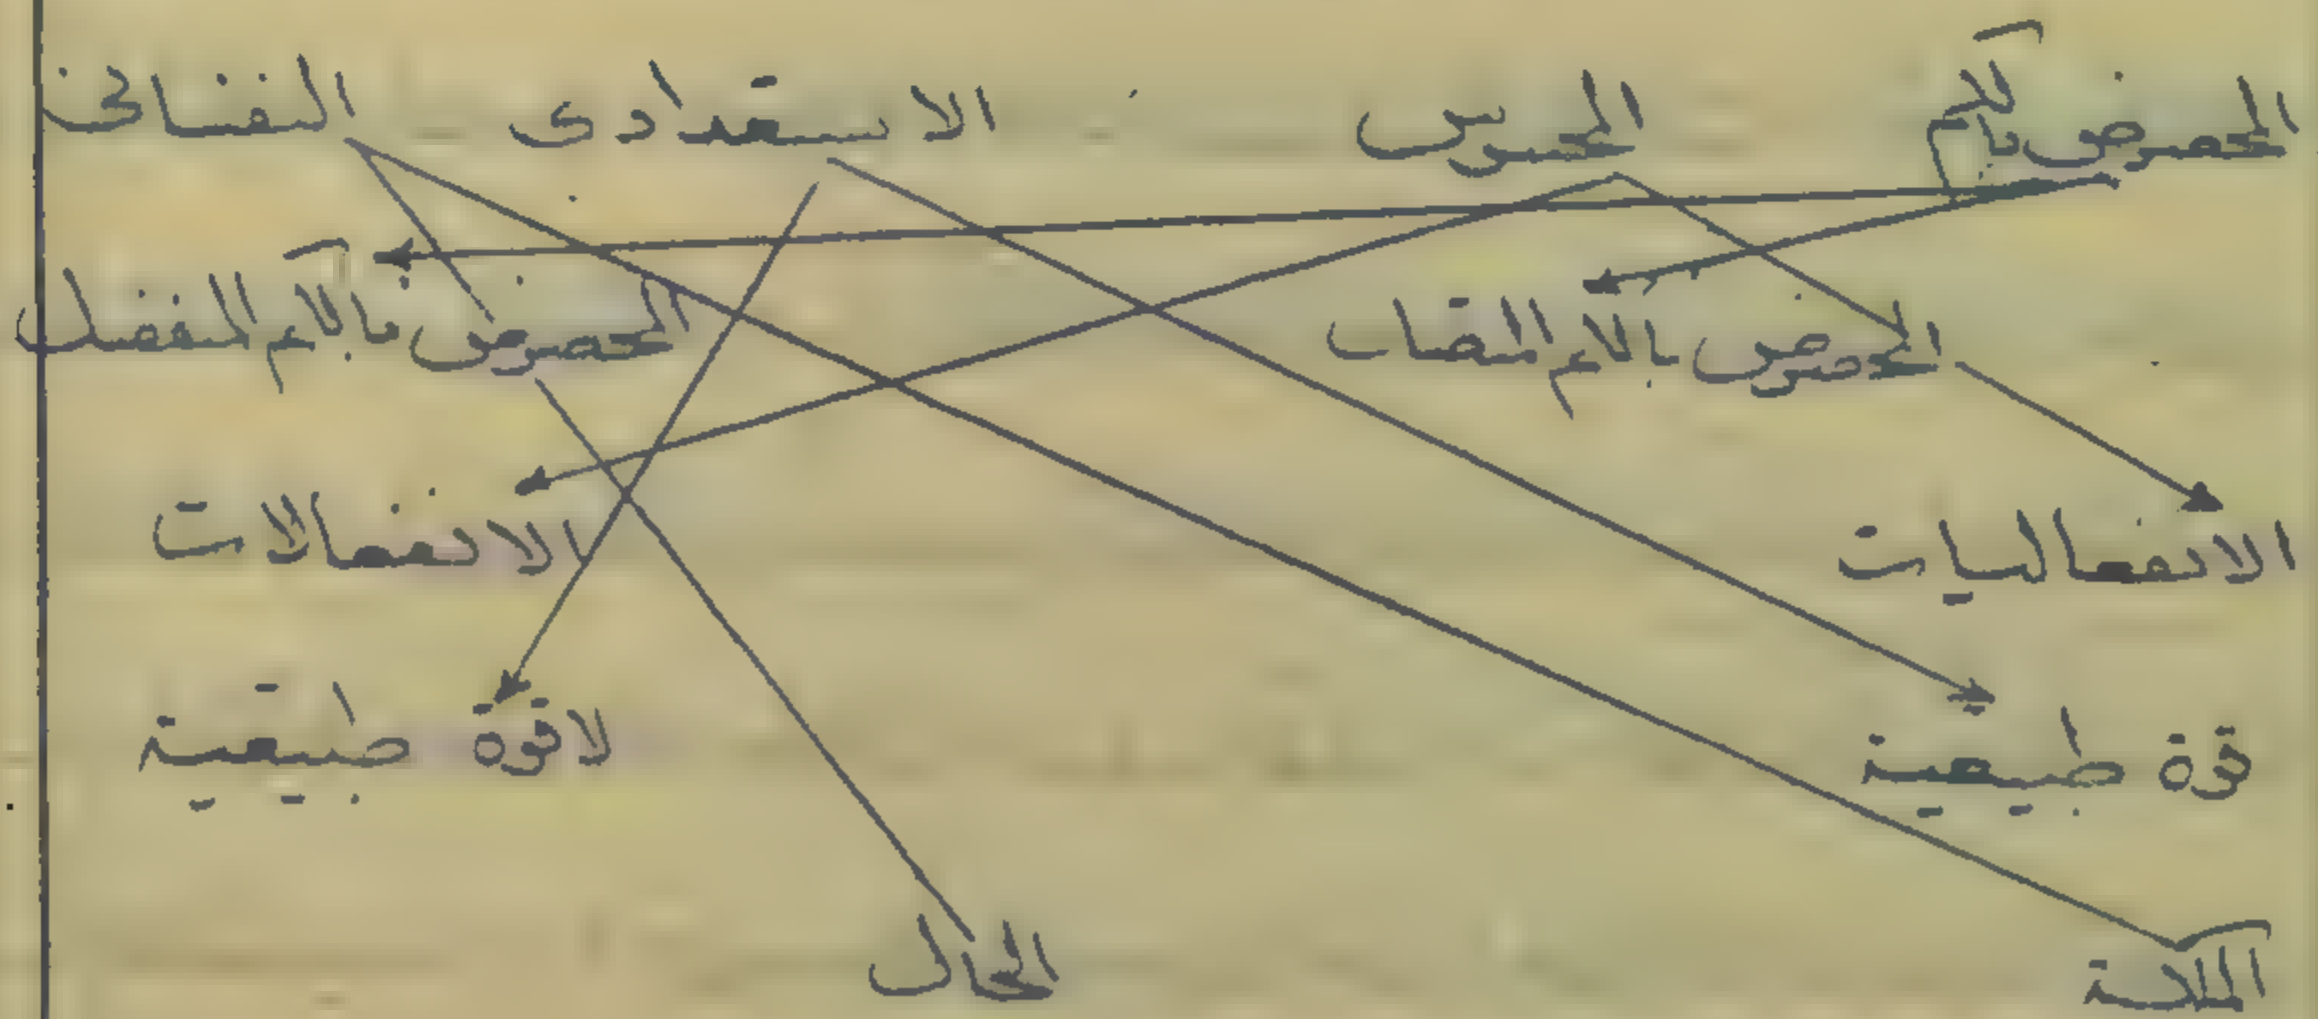 المخصوص بالكم المحسوس الاستعدادى النفسانى
المخصوص بالكم المتصل المخصوص بالكم المنفصل
الانفعاليات الانفعالات
قوة طبيعية لاقوة طبيعية
الملكة الحال